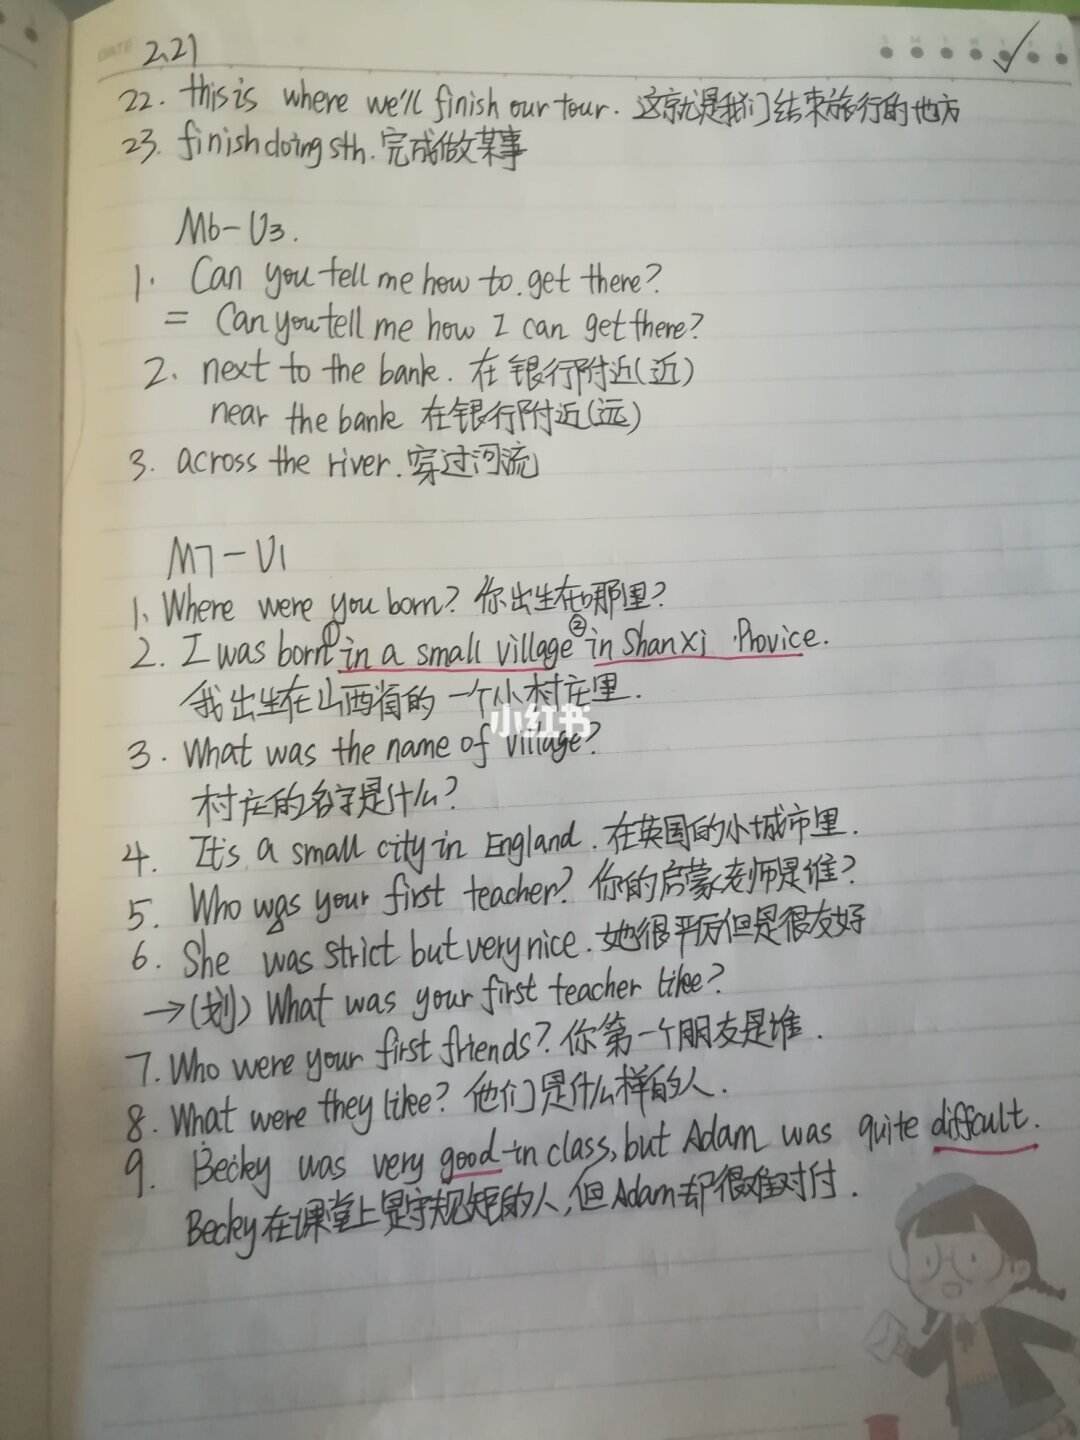 2.21
22. this is where we'll finish our tour. 这就是我们结束旅行的地方
23. finish doing sth. 完成做某事
M6-U3.
1. Can you tell me how to get there?
= Can you tell me how I can get there?
2. next to the bank. 在银行附近(近)
near the bank 在银行附近(远)
3. across the river. 穿过河流
M7-U1
1. Where were you born? 你出生在哪里?
2. I was born ①in a small village ②in ShanXi Provice.
我出生在山西省的一个小村庄里.
小红书
3. What was the name of village?
村庄的名字是什么?
4. It's a small city in England. 在英国的小城市里.
5. Who was your first teacher? 你的启蒙老师是谁?
6. She was strict but very nice. 她很严厉但是很友好
→(划) What was your first teacher like?
7. Who were your first friends? 你第一个朋友是谁.
8. What were they like? 他们是什么样的人.
9. Becky was very good in class, but Adam was quite difficult.
Becky在课堂上是守规矩的人,但Adam却很难对付.